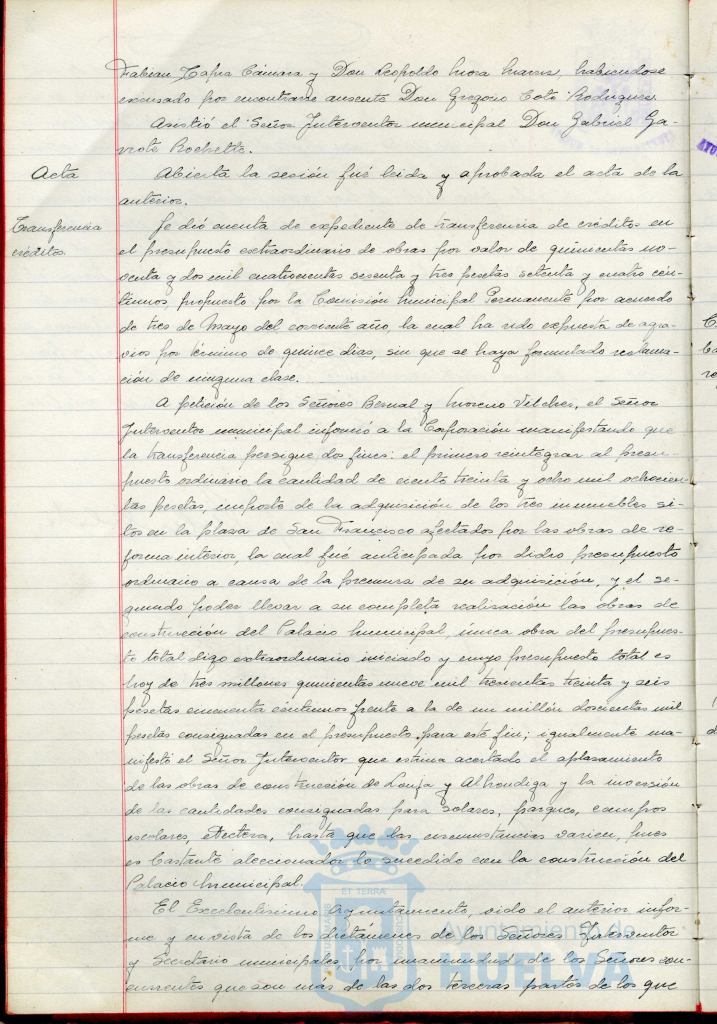 Fabian Tapia Cámara y Don Leopoldo Mora Marin, habiendose
excusado por encontrarse ausente Don Gregorio Coto Rodriguez.
Asistió el Señor Interventor municipal Don Gabriel Ga-
rrote Rochette.
Acta
Abierta la sesión fué leida y aprobada el acta de la
anterior.
Transferencia
créditos.
Se dió cuenta de expediente de transferencia de créditos en
el presupuesto extraordinario de obras por valor de quinientas no-
venta y dos mil cuatrocientas sesenta y tres pesetas setenta y cuatro cén-
timos, propuesto por la Comisión Municipal Permanente por acuerdo
de tres de Mayo del corriente año, la cual ha sido expuesta de agra-
vios por término de quince dias, sin que se haya formulado reclama-
ción de ninguna clase.
A petición de los Señores Bernal y Moreno Vilches, el Señor
Interventor municipal informó a la Corporación manifestando que
la transferencia persigue dos fines: el primero reintegrar al presu-
puesto ordinario la cantidad de ciento treinta y ocho mil ochocien-
tas pesetas, importe de la adquisición de los tres inmuebles si-
tos en la plaza de San Francisco afectados por las obras de re-
forma interior, la cual fué anticipada por dicho presupuesto
ordinario a causa de la premura de su adquisición, y el se-
gundo poder llevar a su completa realización las obras de
construcción del Palacio Municipal, única obra del presupues-
to total digo extraordinario iniciado y cuyo presupuesto total es
hoy de tres millones quinientas nueve mil trescientas treinta y seis
pesetas cincuenta céntimos frente a la de un millón doscientas mil
pesetas consignadas en el presupuesto para este fin; igualmente ma-
nifestó el Señor Interventor que estima acertado el aplazamiento
de las obras de construcción de Lonja y Alhondiga y la inversión
de las cantidades consignadas para solares, parques, campos
escolares, etcetera, hasta que las circunstancias varien, pues
es bastante aleccionador lo sucedido con la construcción del
Palacio Municipal.
El Excelentisimo Ayuntamiento, oido el anterior infor-
me y en vista de los dictámenes de los Señores Interventor
y Secretario municipales por unanimidad de los Señores con-
currentes que son más de las dos terceras partes de los que
ET TERRAE
Ayuntamiento de
HUELVA